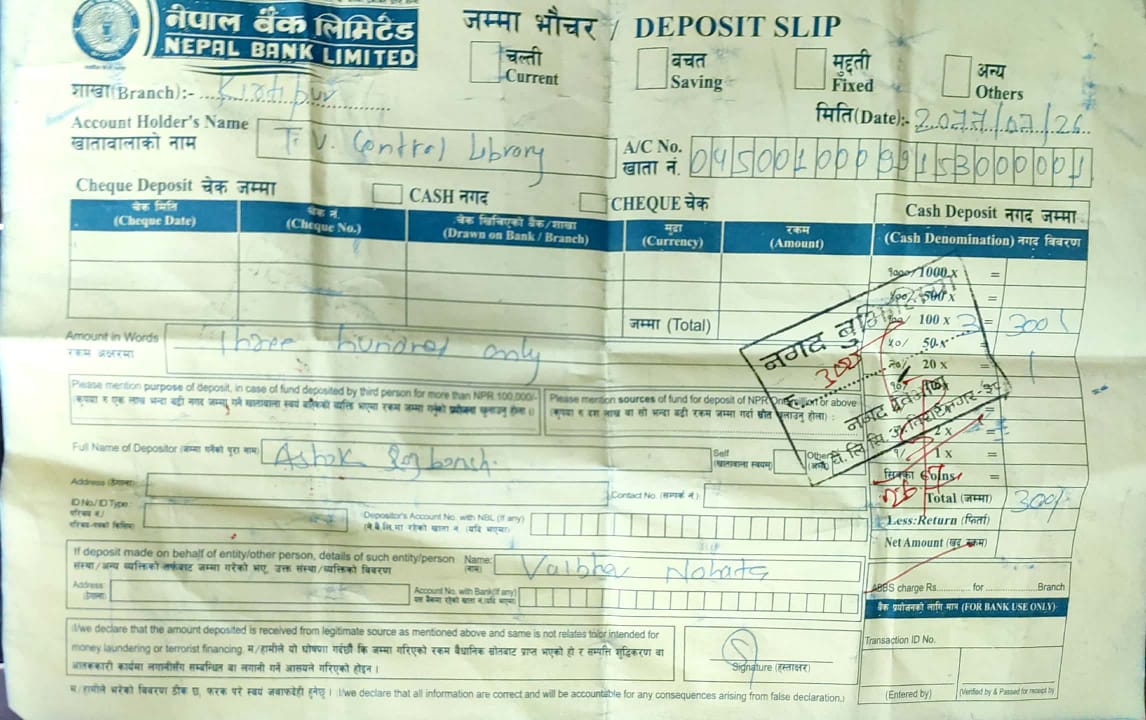 नेपाल बैंक लिमिटेड
NEPAL BANK LIMITED
जम्मा भौचर / DEPOSIT SLIP
चल्ती
Current
बचत
Saving
मुद्दती
Fixed
अन्य
Others
शाखा(Branch):- Kirtipur
मिति(Date):- 2077/07/26
Account Holder's Name
खातावालाको नाम
T.V. Central Library
A/C No.
खाता नं.
Cheque Deposit चेक जम्मा
CASH नगद
CHEQUE चेक
Cash Deposit नगद जम्मा
चेक मिति
(Cheque Date)
चेक नं.
(Cheque No.)
चेक खिचिएको बैंक/शाखा
(Drawn on Bank / Branch)
मुद्रा
(Currency)
रकम
(Amount)
(Cash Denomination) नगद विवरण
१०००/ 1000 x =
५००/ 500 x =
जम्मा (Total)
100 x 3 = 300/
५०/ 50 x =
२०/ 20 x =
2 x =
१/ 1 x =
सिक्का Coins
Total (जम्मा) 300/
Less: Return (फिर्ता)
Net Amount (खुद रकम)
ABBS charge Rs............ for .................Branch
Amount in Words
रकम अक्षरमा
Three hundred only
नगद
Please mention purpose of deposit, in case of fund deposited by third person for more than NPR 100,000/-
Please mention sources of fund for deposit of NPR One or above
Full Name of Depositor (जम्मा गर्नेको पुरा नाम)
Ashok
Self
(खातावाला स्वयम्)
Other
(अन्य)
Address (ठेगाना)
Contact No. (सम्पर्क नं.)
ID No/ID Type :
Depositor's Account No. with NBL (If any)
If deposit made on behalf of entity/other person, details of such entity/person
संस्था/अन्य व्यक्तिको तर्फबाट जम्मा गरेको भए, उक्त संस्था/व्यक्तिको विवरण
Name:
(नाम)
Address
(ठेगाना)
Account No. with Bank(If any)
I/we declare that the amount deposited is received from legitimate source as mentioned above and same is not relates to/or intended for
money laundering or terrorist financing. म/हामीले यो घोषणा गर्दछौं कि जम्मा गरिएको रकम वैधानिक स्रोतबाट प्राप्त भएको हो र सम्पत्ति शुद्धिकरण वा
आतंककारी कार्यमा लगानीसँग सम्बन्धित वा लगानी गर्ने आसयले गरिएको होइन ।
Signature (हस्ताक्षर)
बैंक प्रयोजनको लागि मात्र (FOR BANK USE ONLY)
Transaction ID No.
(Entered by)
(Verified by & Passed for receipt by
म/हामीले भरेको विवरण ठीक छ, फरक परे स्वयं जवाफदेही हुनेछु । (I/we declare that all information are correct and will be accountable for any consequences arising from false declaration.)